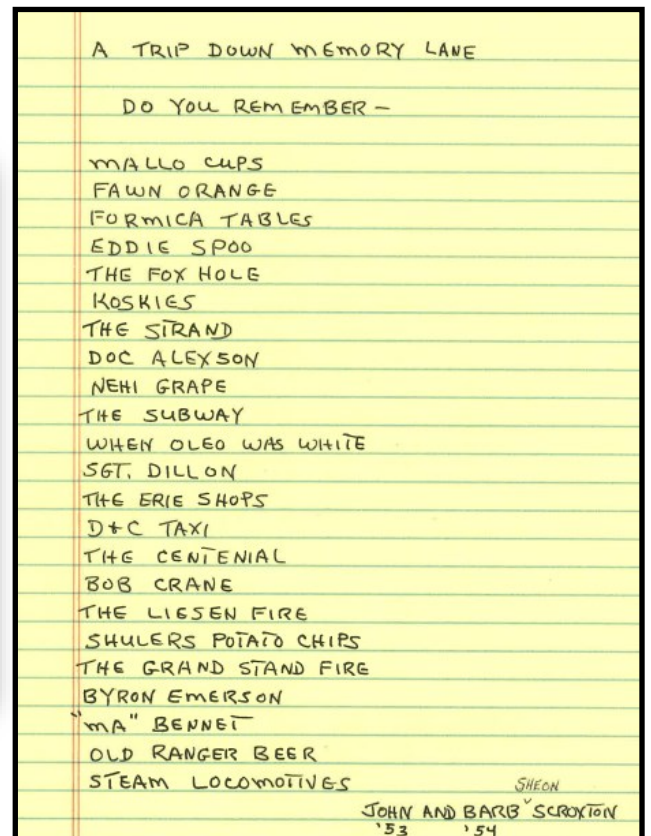 A TRIP DOWN MEMORY LANE
DO YOU REMEMBER -
MALLO CUPS
FAWN ORANGE
FORMICA TABLES
EDDIE SPOO
THE FOX HOLE
KOSKIES
THE STRAND
DOC ALEXSON
NEHI GRAPE
THE SUBWAY
WHEN OLEO WAS WHITE
SGT. DILLON
THE ERIE SHOPS
D+C TAXI
THE CENTENIAL
BOB CRANE
THE LIESEN FIRE
SHULERS POTATO CHIPS
THE GRAND STAND FIRE
BYRON EMERSON
"MA" BENNET
OLD RANGER BEER
STEAM LOCOMOTIVES
SHEON
JOHN AND BARB SCROXTON
'53 '54